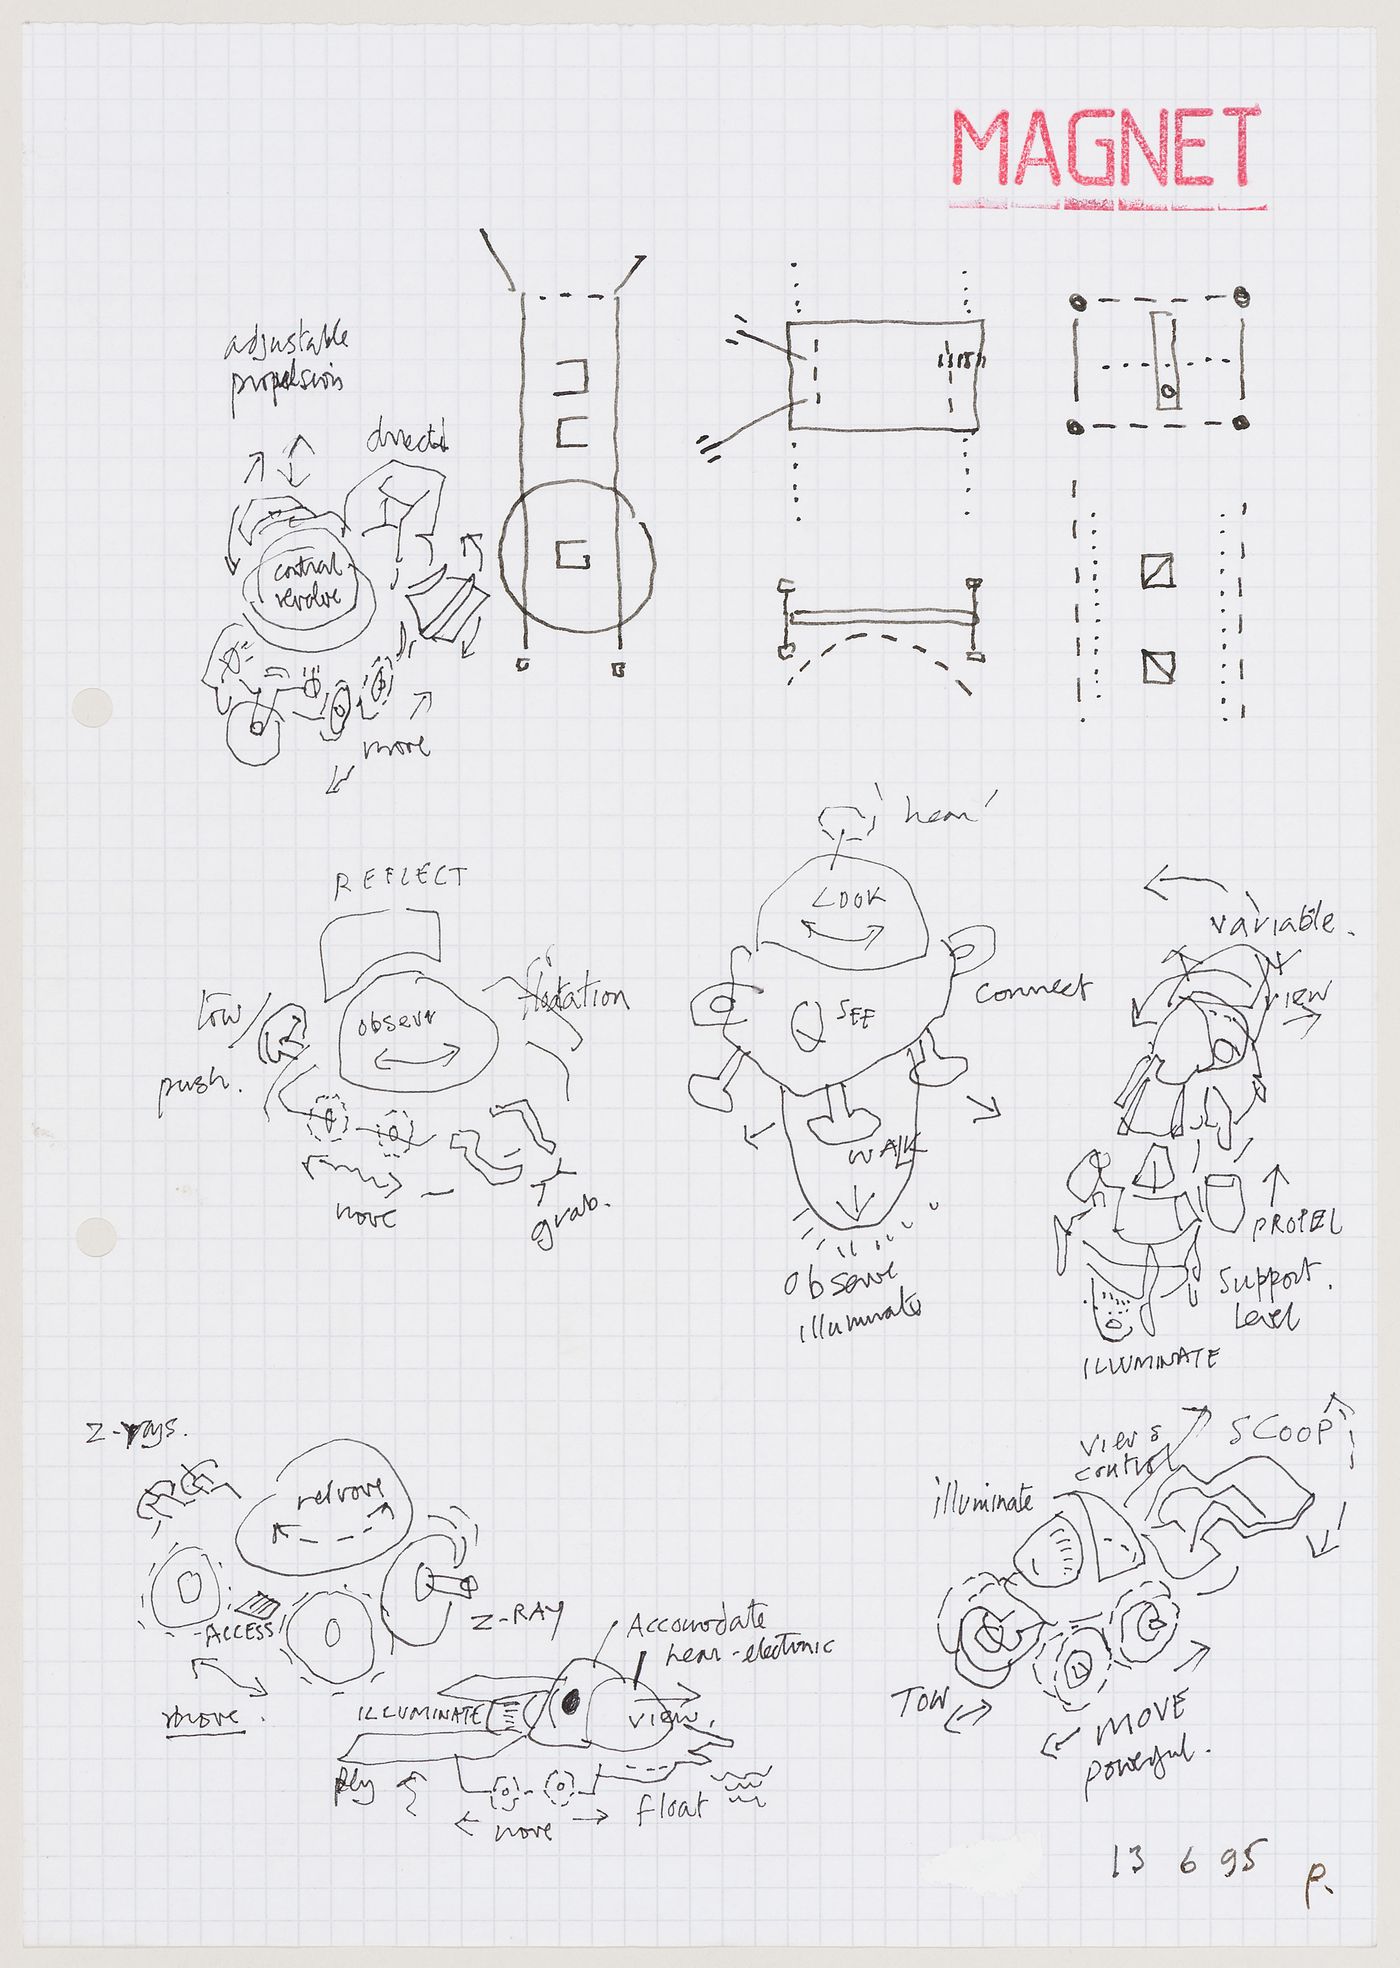 MAGNET
adjustable
propulsion
direct
control
revolve
move
'hear'
REFLECT
LOOK
variable.
view
tow
push.
observe
flotation
connect
SEE
WALK
move
grab.
PROPEL
Support.
level
observe
illuminate
ILLUMINATE
Z-rays.
view &
control
SCOOP
illuminate
Z-RAY
ACCESS
Accomodate
hear-electronic
move.
ILLUMINATE
view.
TOW
MOVE
powerful.
float
move
13 6 95
P.